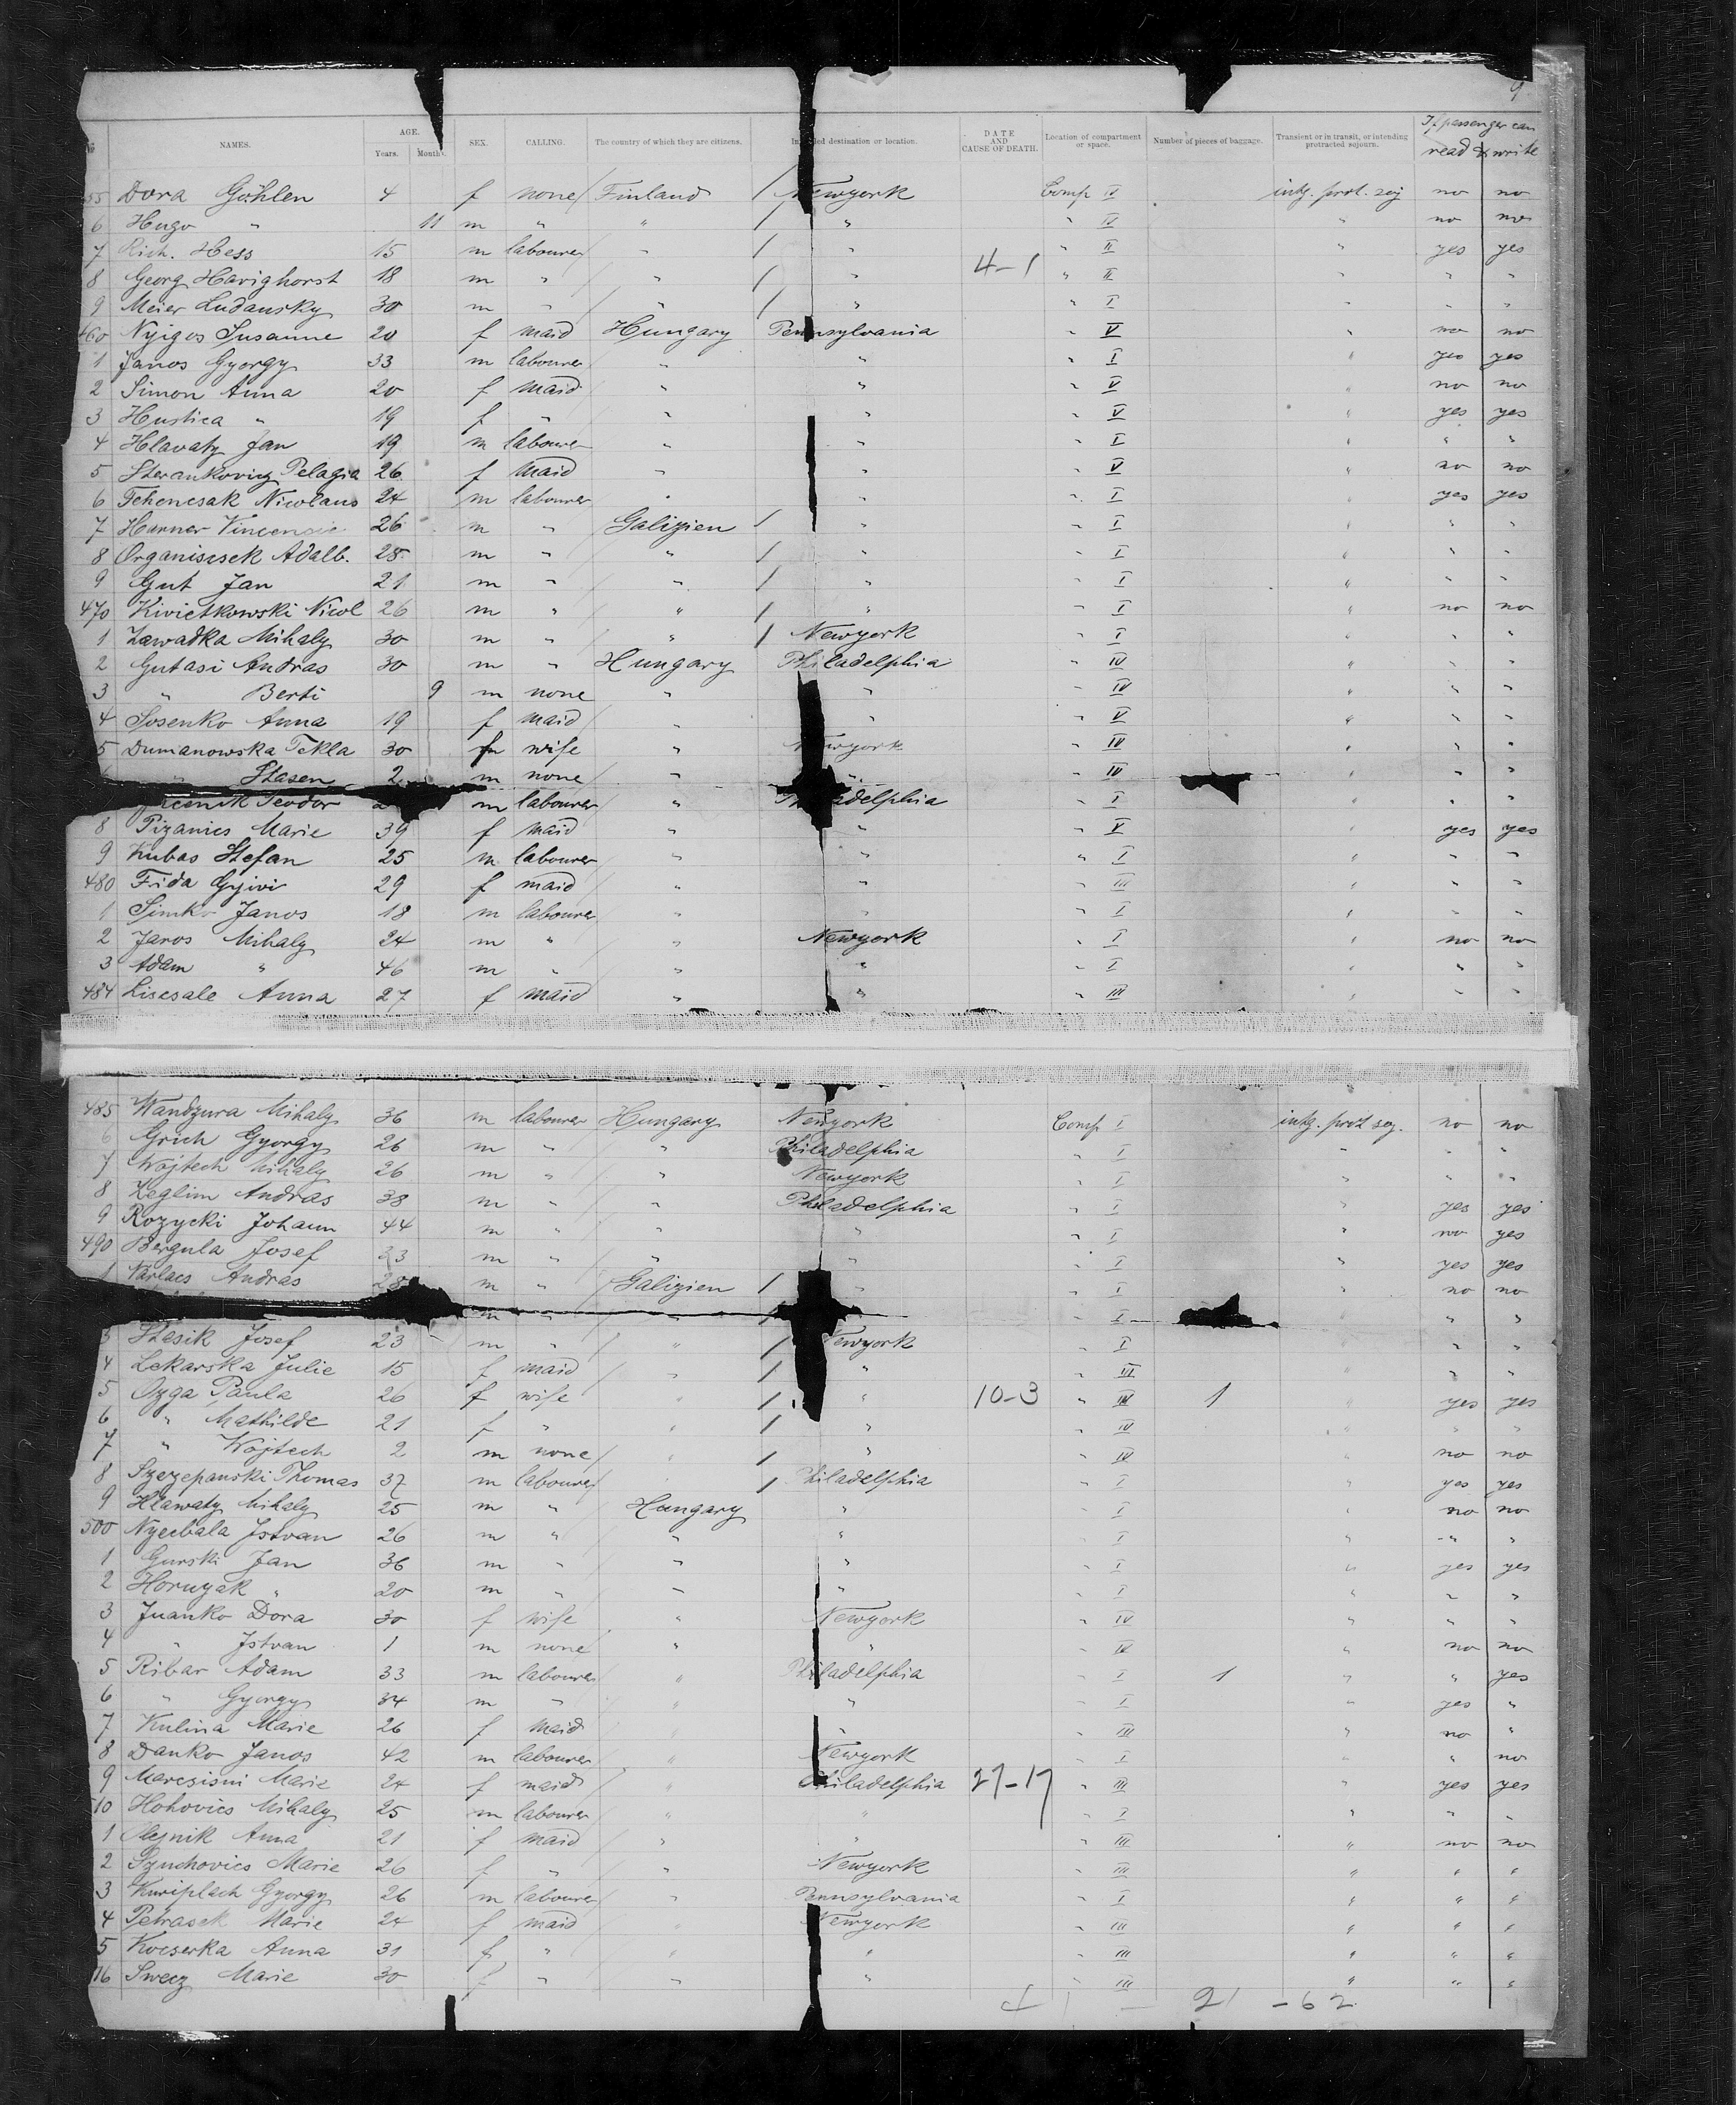 9
No NAMES. AGE. Years. Months. SEX. CALLING. The country of which they are citizens. Intended destination or location. DATE AND CAUSE OF DEATH. Location of compartment or space. Number of pieces of baggage. Transient or in transit, or intending protracted sojourn. If passenger can read & write
55 Dora Göhlen 4 f none Finland / Newyork Comp IV intg. prot. soj no no
6 Hugo " 11 m " " / " " IV " no no
7 Rich. Hess 15 m labourer " / " " II " yes yes
8 Georg Havighorst 18 m " " / " 4-1 " II " " "
9 Meier Ludansky 30 m " " / " " I " " "
460 Nyigos Susanne 20 f maid Hungary Pennsylvania " V " no no
1 Janos Gyorgy 33 m labourer " " " I " yes yes
2 Simon Anna 20 f maid " " " V " no no
3 Hustica " 19 f " " " " V " yes yes
4 Hlavaty Jan 19 m labourer " " " I " " "
5 Sterankovicz Pelagia 26 f maid " " " V " no no
6 Tehencsak Nicolaus 24 m labourer " " " I " yes yes
7 Harner 26 m " Galizien / " " I " " "
8 Organiscsek Adalb. 28 m " " / " " I " " "
9 Gut Jan 21 m " " / " " I " " "
470 Kivietkowski Nicol 26 m " " / " " I " no no
1 Zawadka Mihaly 30 m " " / Newyork " I " " "
2 Gutasi Andras 30 m " Hungary Philadelphia " IV " " "
3 " Berti 9 m none " " " IV " " "
4 Sosenko Anna 19 f maid " " " V " " "
5 Dumanowska Tekla 30 f wife " Newyork " IV " " "
" Stasen 2 m none " " " IV " " "
Teodor m labourer " Philadelphia " I " " "
8 Pizanics Marie 39 f maid " " " V " yes yes
9 Kubas Stefan 25 m labourer " " " I " " "
480 Frida Gyivi 29 f maid " " " III " " "
1 Simko Janos 18 m labourer " " " I " " "
2 Jaros Mihaly 24 m " " Newyork " I " no no
3 Adam " 46 m " " " " I " " "
484 Liscsale Anna 27 f maid " " " III " " "
485 Wandzura Mihaly 36 m labourer Hungary Newyork Comp I intg. prot soj. no no
6 Grich Gyorgy 26 m " " Philadelphia " I " " "
7 Wojtech Mihaly 26 m " " Newyork " I " " "
8 Zeglim Andras 38 m " " Philadelphia " I " yes yes
9 Rozycki Johann 44 m " " " " I " no yes
490 Bergula Josef 23 m " " " " I " yes yes
1 Varlacs Andras 28 m " Galizien / " " I " no no
m " " / " I " " "
3 Stasik Josef 23 m " " / Newyork " I " " "
4 Lekarska Julie 15 f maid " / " " III " " "
5 Ozga Paula 26 f wife " / " 10-3 " IV 1 " yes yes
6 " Mathilde 21 f " " / " " IV " " "
7 " Wojtech 2 m none " / " " IV " no no
8 Szczepanski Thomas 37 m labourer " / Philadelphia " I " yes yes
9 Hlawaty Mihaly 25 m " Hungary " " I " no no
500 Nyecbala Istvan 26 m " " " " I " " "
1 Gurski Jan 36 m " " " " I " yes yes
2 Hornyak " 20 m " " " " I " " "
3 Juanko Dora 30 f wife " Newyork " IV " " "
4 " Istvan 1 m none " " " IV " no no
5 Ribar Adam 33 m labourer " Philadelphia " I 1 " " yes
6 " Gyorgy 34 m " " " " I " yes "
7 Kulina Marie 26 f maid " " " III " no "
8 Danko Janos 42 m labourer " Newyork " I " " no
9 Marcsisni Marie 24 f maid " Philadelphia 27-17 " III " yes yes
510 Hohovics Mihaly 25 m labourer " " " I " " "
1 Olejnik Anna 21 f maid " " " III " no no
2 Szuchovics Marie 26 f " " Newyork " III " " "
3 Kuriplach Gyorgy 26 m labourer " Pennsylvania " I " " "
4 Petrasek Marie 24 f maid " Newyork " III " " "
5 Kocserka Anna 31 f " " " " III " " "
16 Swecz Marie 30 f " " " " III " " "
21 - 62